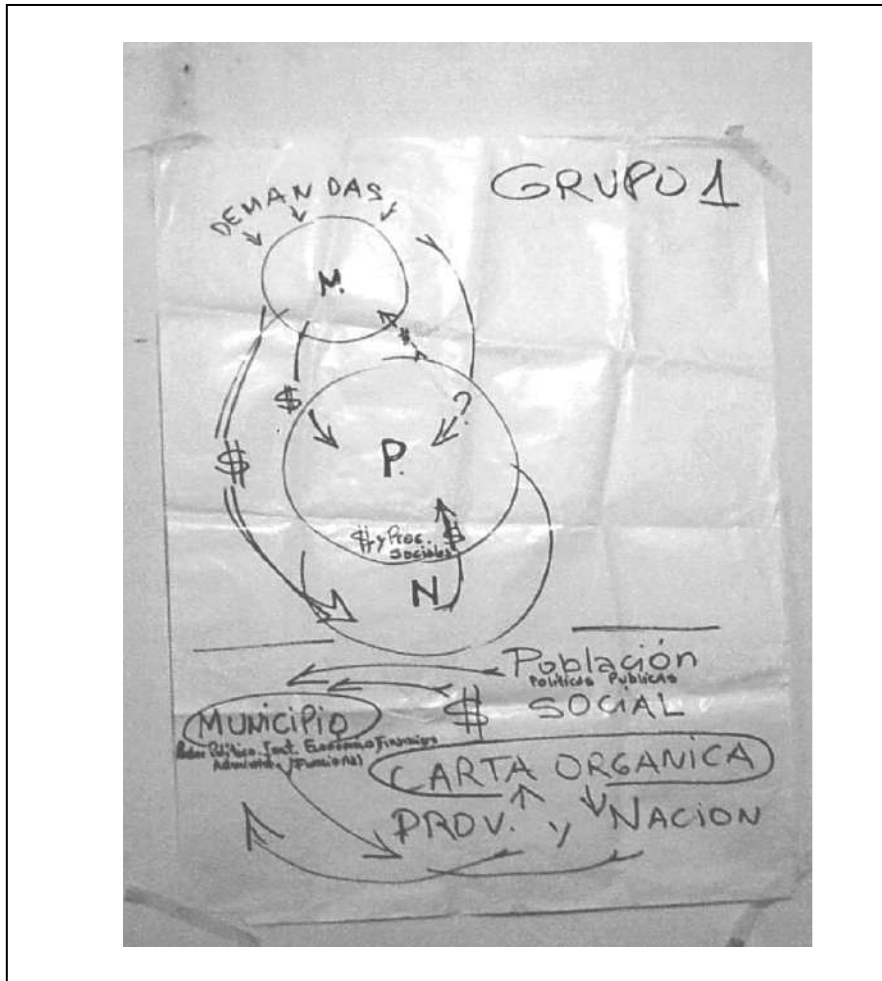 GRUPO 1
DEMANDAS
M.
$
$
?
$
P.
$ y Proc. $
Sociales
N
Población
Políticas Publicas
$ SOCIAL
MUNICIPIO
Poder Político. Inst. Económico/Financiero
Administ. (Funcional)
CARTA ORGANICA
PROV. y NACION